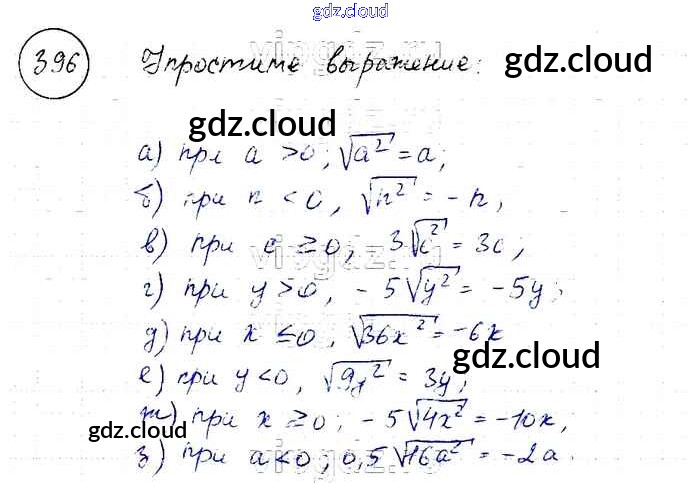 gdz.cloud
396 Упростите выражение:
gdz.cloud
gdz.cloud
а) при a > 0; √a² = a;
б) при n < 0, √n² = -n,
в) при c ≥ 0; 3√c² = 3c,
г) при y > 0, -5√y² = -5y;
д) при x ≤ 0, √36x² = -6x
gdz.cloud
е) при y < 0, √9y² = 3y,
ж) при x ≥ 0; -5√4x² = -10x,
gdz.cloud
з) при a < 0, 0,5√16a² = -2a.